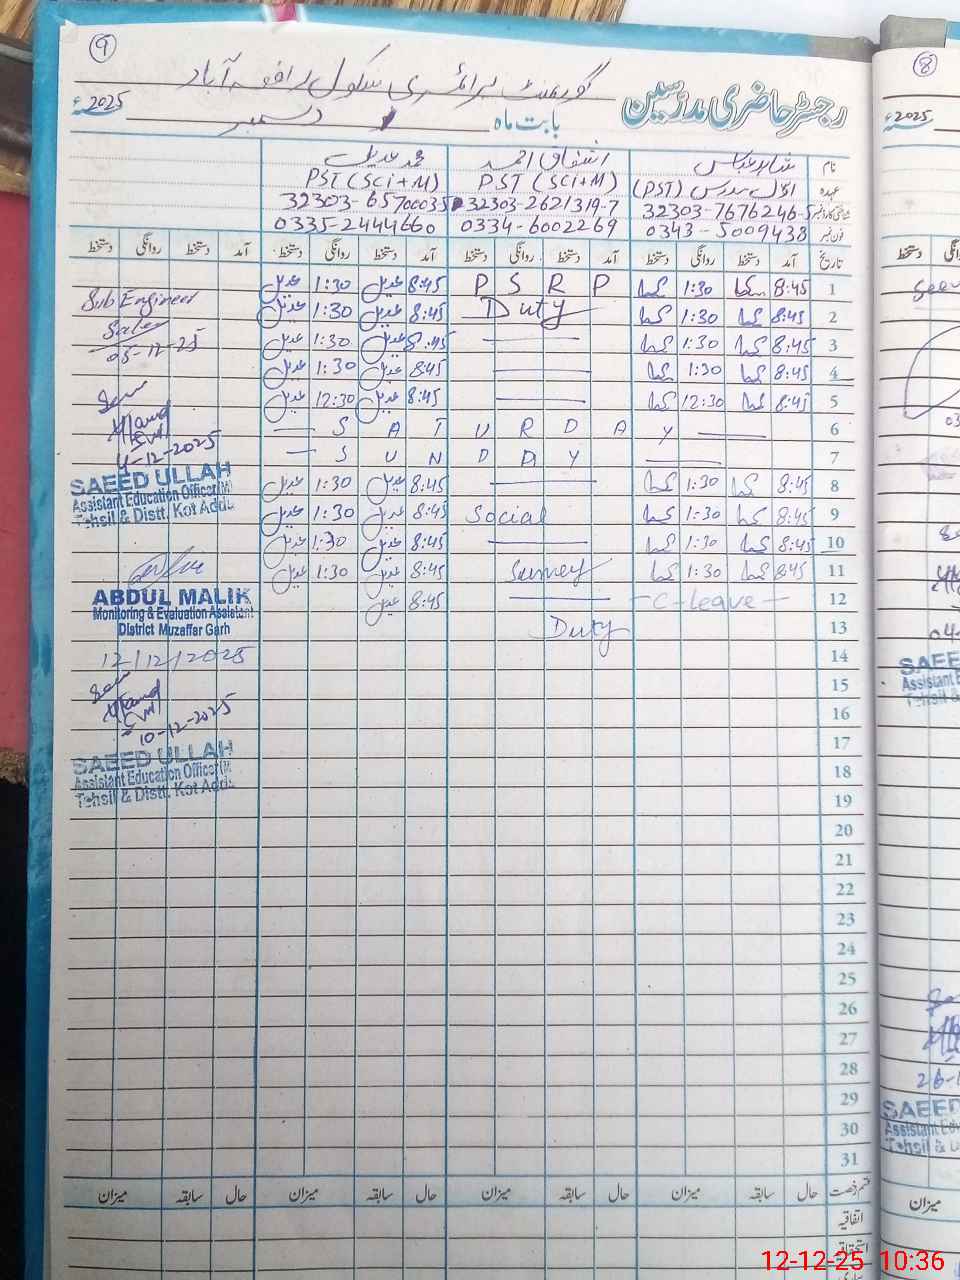 9
گورنمنٹ پرائمری سکول رافعہ آباد
رجسٹر حاضری مدرسین
بابت ماہ دسمبر 2025ء
نام شاہد عباس اشفاق احمد محمد عدیل
عہدہ اول مدرس (PST) PST (Sci+M) PST (Sci+M)
شناختی کارڈ نمبر 32303-7676246-5 32303-2621319-7 32303-65700035
فون نمبر 0343-5009438 0334-6002269 0335-2444660
تاریخ آمد دستخط روانگی دستخط آمد دستخط روانگی دستخط آمد دستخط روانگی دستخط آمد دستخط روانگی دستخط
1 8:45 1:30 P S R P 8:45 عدیل 1:30 عدیل
2 8:45 1:30 Duty 8:45 عدیل 1:30 عدیل
3 8:45 1:30 8:45 عدیل 1:30 عدیل
4 8:45 1:30 8:45 عدیل 1:30 عدیل
5 8:45 12:30 8:45 عدیل 12:30 عدیل
6 S A T U R D A Y
7 S U N D A Y
8 8:45 1:30 8:45 عدیل 1:30 عدیل
9 8:45 1:30 Social 8:45 عدیل 1:30 عدیل
10 8:45 1:30 8:45 عدیل 1:30 عدیل
11 8:45 1:30 Survey 8:45 عدیل 1:30 عدیل
12 C-leave 8:45 عدیل
13 Duty
14
15
16
17
18
19
20
21
22
23
24
25
26
27
28
29
30
31
Sub Engineer
05-12-25
4-12-2025
SAEED ULLAH
Assistant Education Officer (M)
Tehsil & Distt. Kot Addu
ABDUL MALIK
Monitoring & Evaluation Assistant
District Muzaffar Garh
12/12/2025
10-12-2025
SAEED ULLAH
Assistant Education Officer (M)
Tehsil & Distt. Kot Addu
قسم رخصت حال سابقہ میزان حال سابقہ میزان حال سابقہ میزان حال سابقہ میزان
اتفاقیہ
استحقاقیہ
8
2025ء
دستخط
04-
26-1
SAEED
Assistant Edu
Tehsil &
میزان
12-12-25 10:36